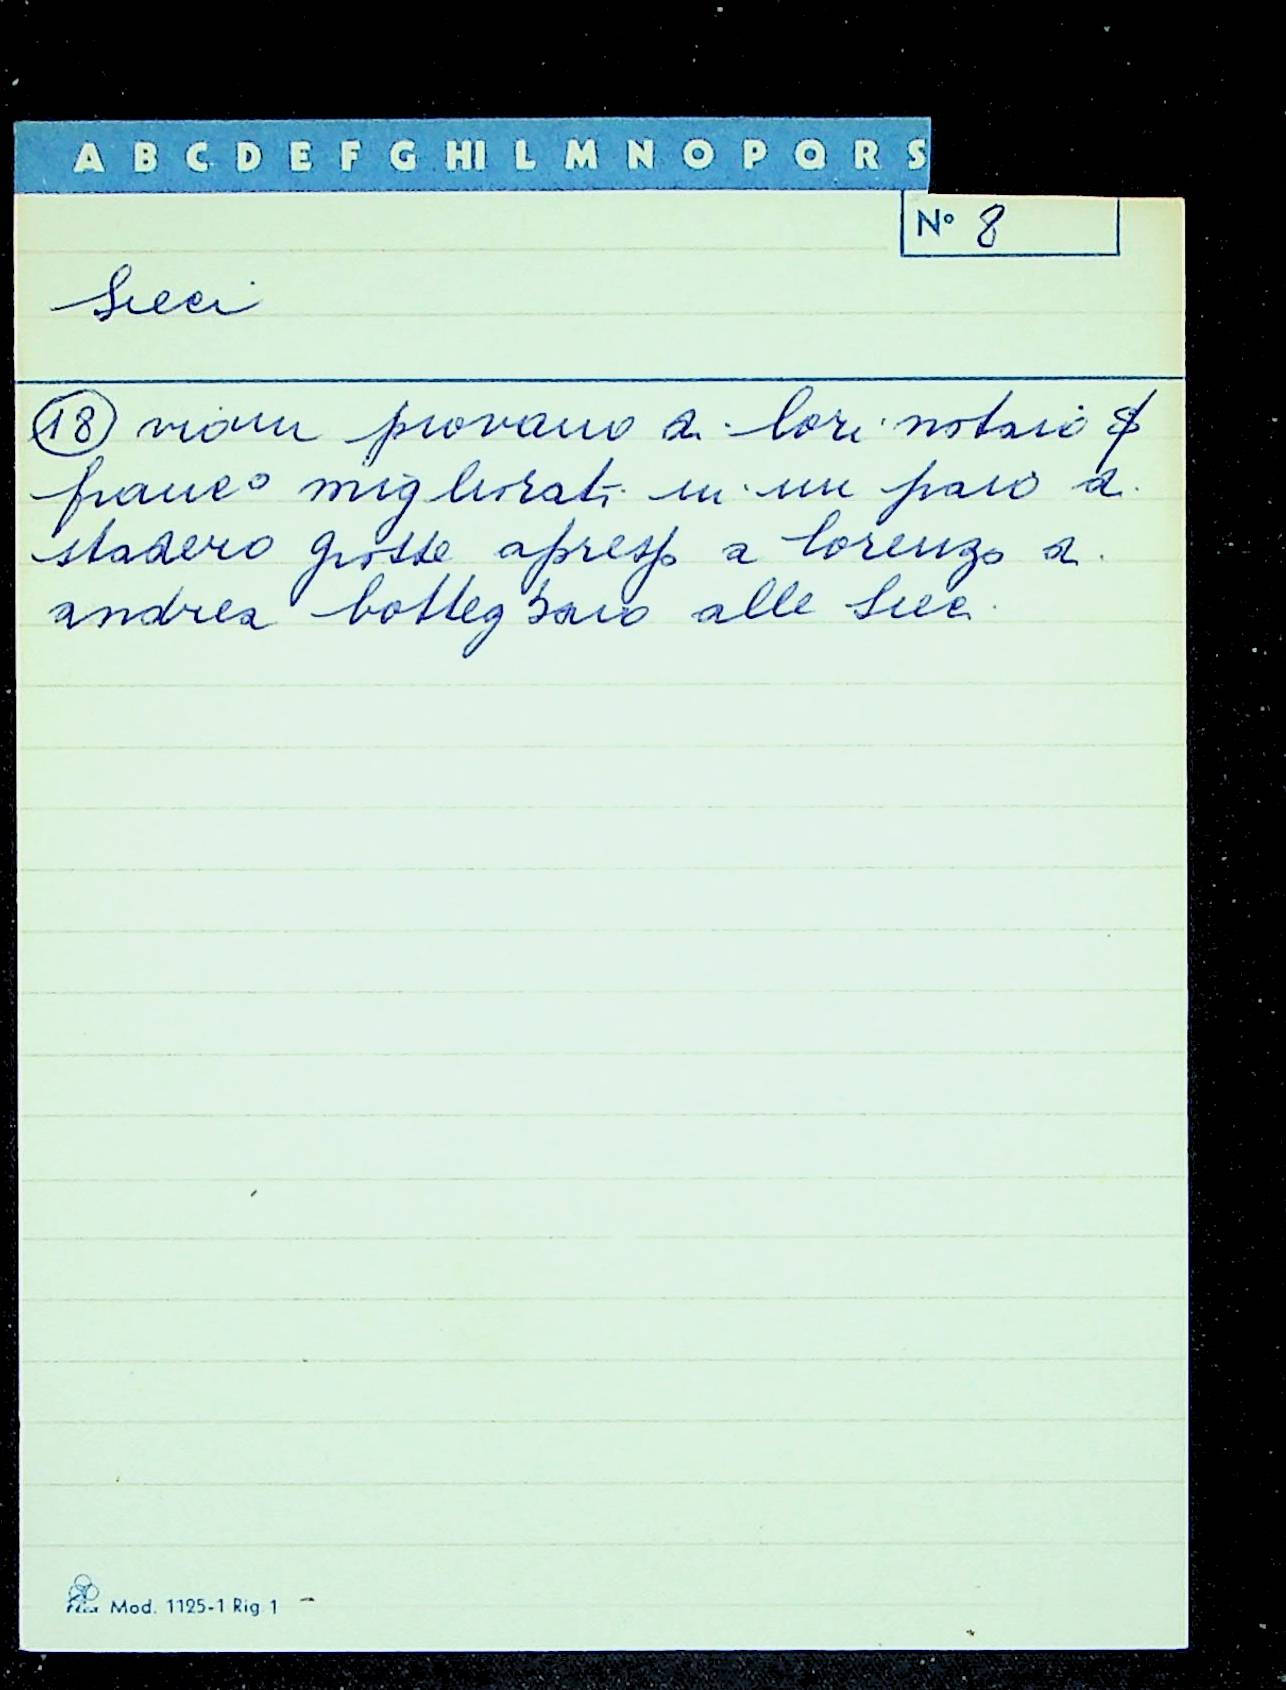 A B C D E F G HI L M N O P Q R S
Nº 8
Sieci
18 provano di lori notaio
franco migliorati in un paio di
stadero grosse apresso a lorenzo di
andrea bottegaio alle Sieci
Mod. 1125-1 Rig 1